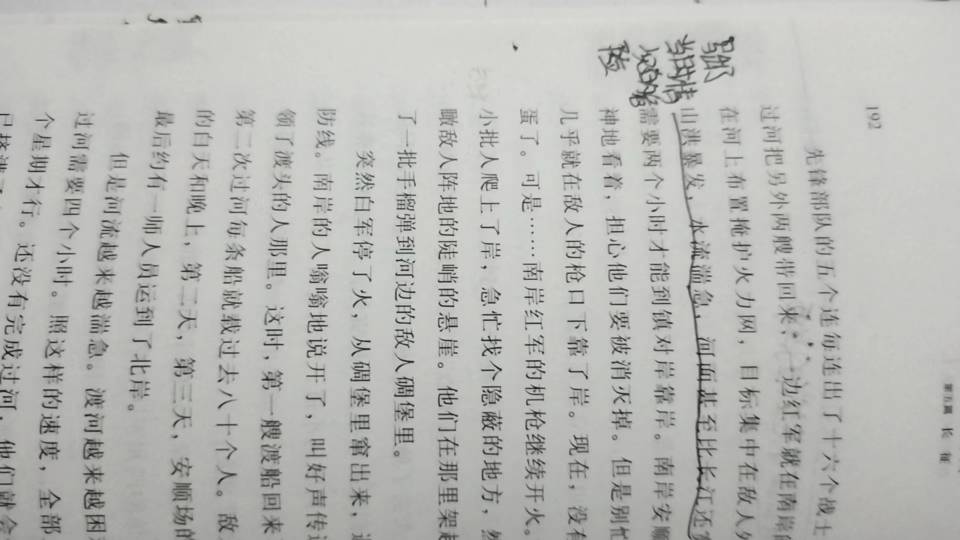 192
第五篇 长 征
先锋部队的五个连每连出了十六个战士
过河把另外两艘带回来，一边红军就在南岸
在河上布置掩护火力网，目标集中在敌人外
山洪暴发，水流湍急，河面甚至比长江还宽
需要两个小时才能到镇对岸靠岸。南岸安顺
神地看着，担心他们要被消灭掉。但是别忙
几乎就在敌人的枪口下靠了岸。现在，没有
蛋了。可是……南岸红军的机枪继续开火。
小批人爬上了岸，急忙找个隐蔽的地方，然
瞰敌人阵地的陡峭的悬崖。他们在那里架起
了一批手榴弹到河边的敌人碉堡里。
突然白军停了火，从碉堡里窜出来，退
防线。南岸的人嗡嗡地说开了，叫好声传过
领了渡头的人那里。这时，第一艘渡船回来
第二次过河每条船就载过去八十个人。敌
的白天和晚上，第二天，第三天，安顺场的
最后约有一师人员运到了北岸。
但是河流越来越湍急。渡河越来越困
过河需要四个小时。照这样的速度，全部
个星期才行。还没有完成过河，他们就会